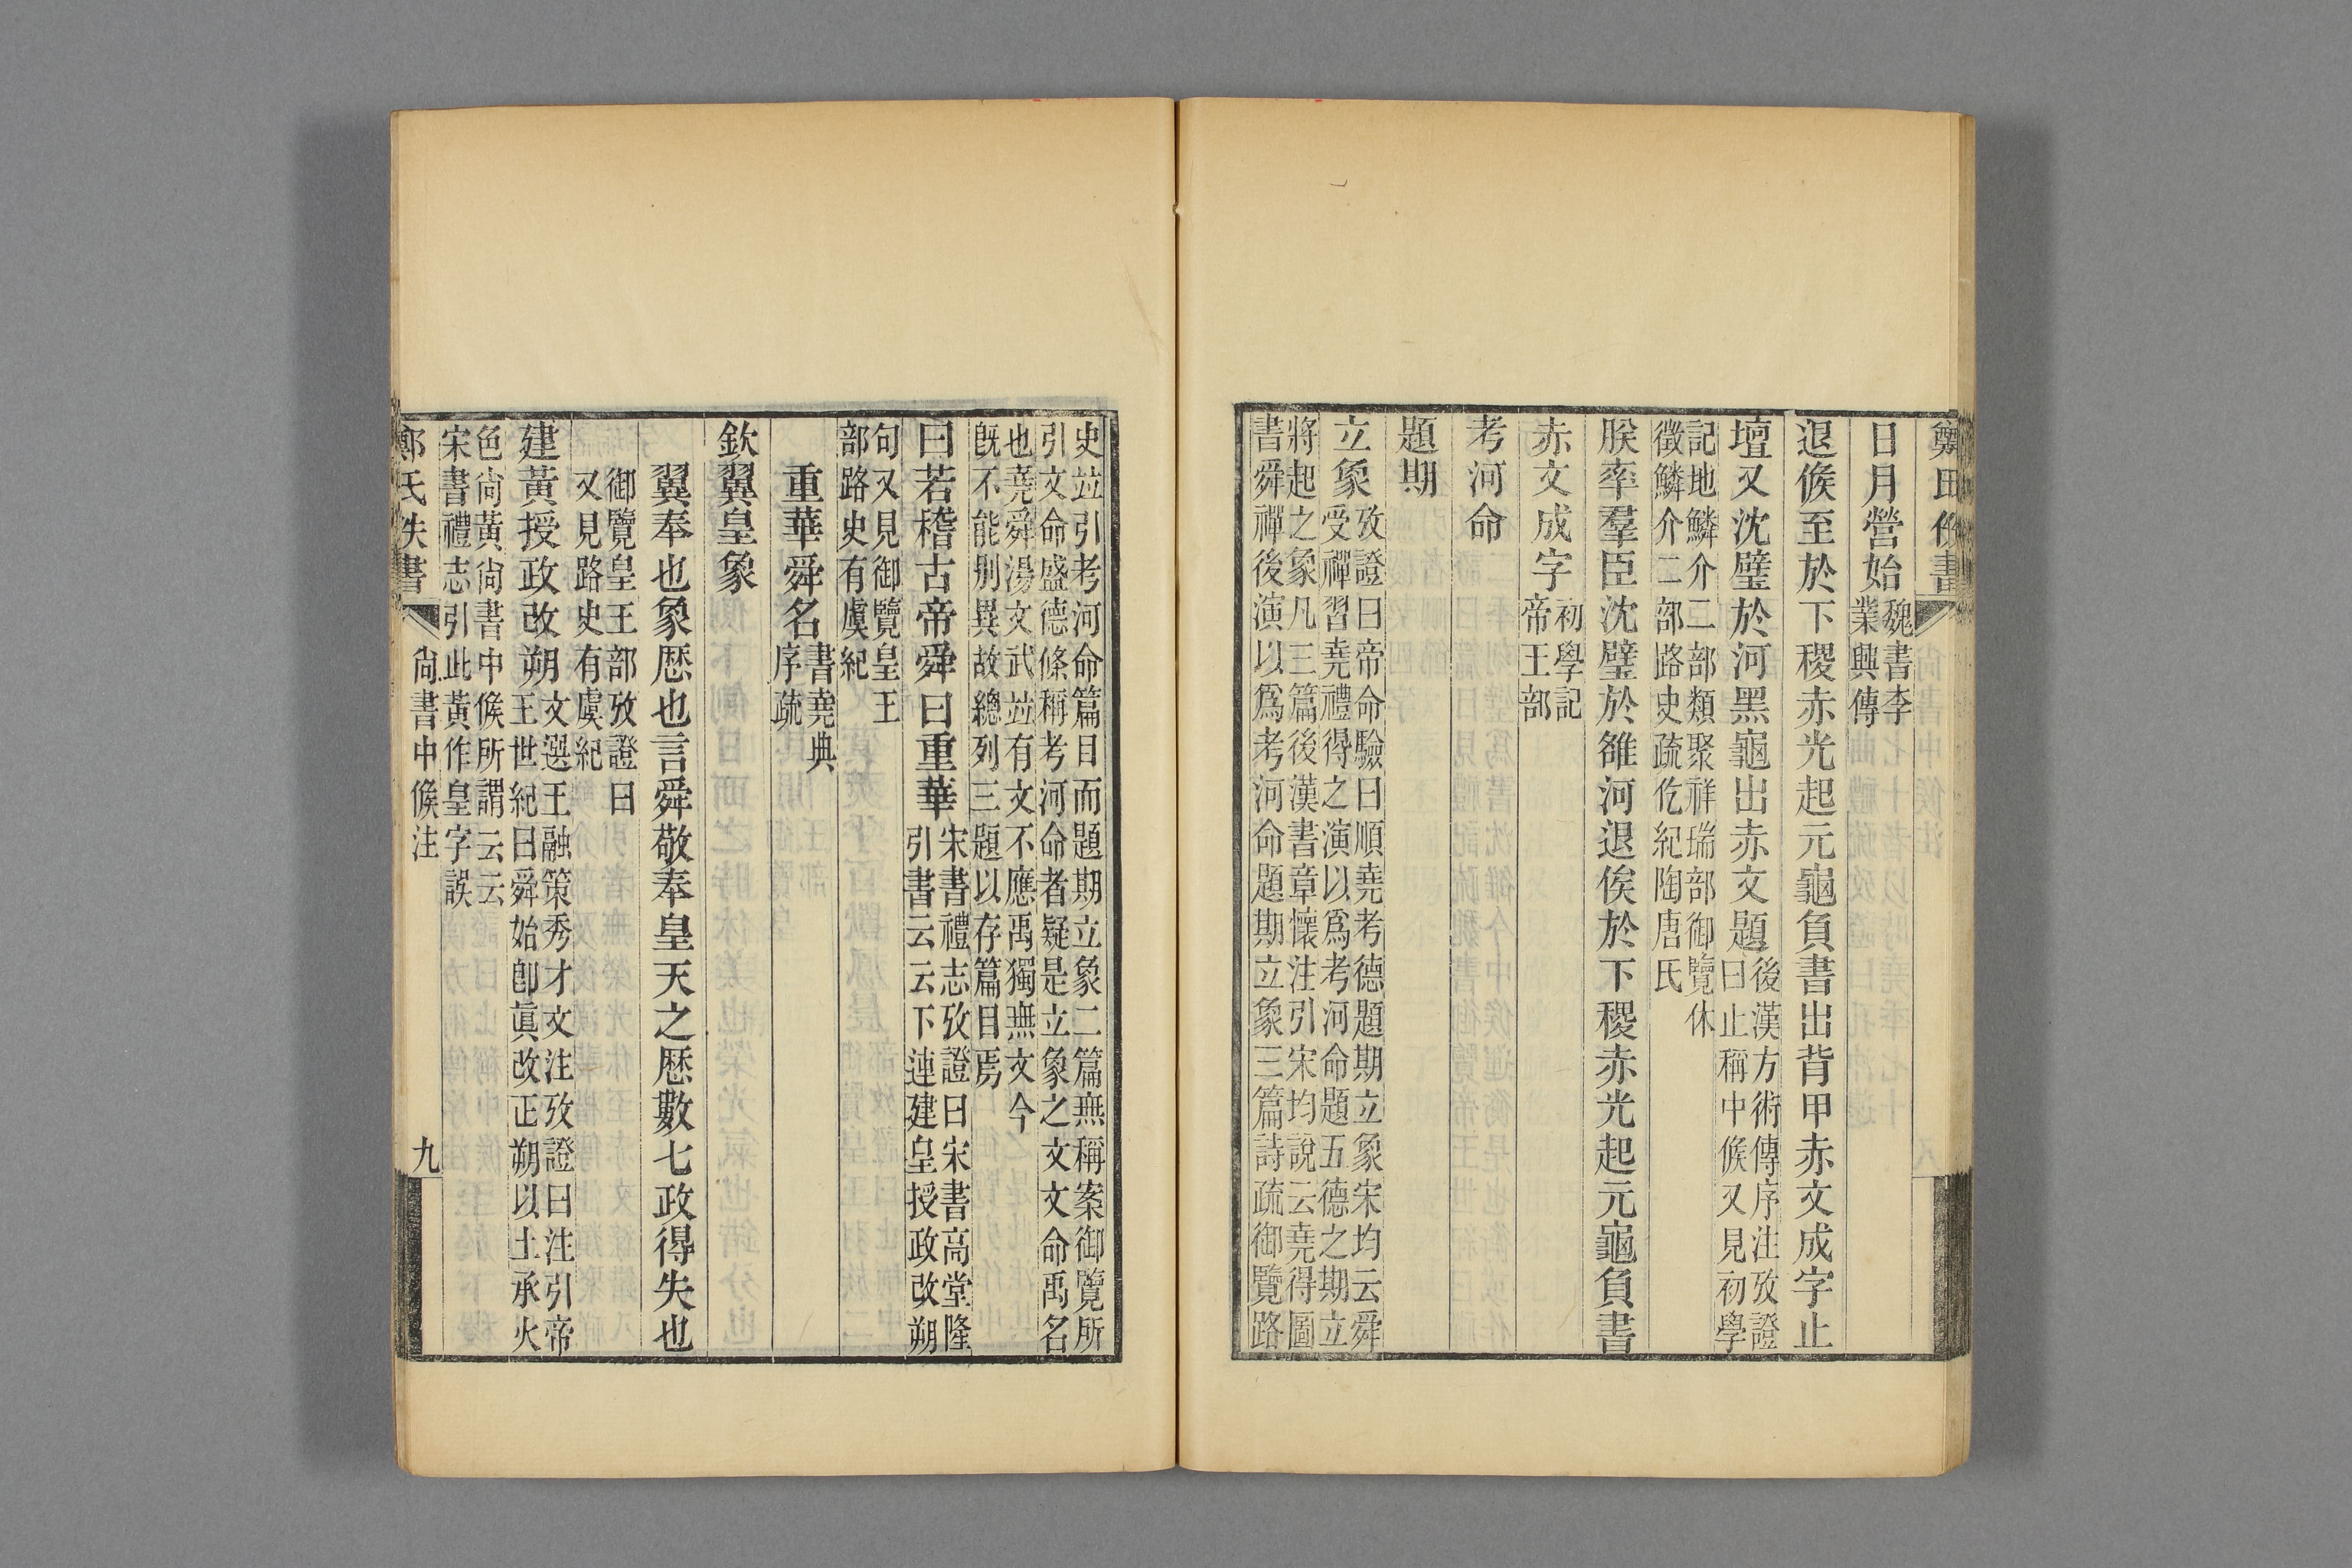 日月營始魏書李業興傳
退候至於下稷赤光起元龜負書出背甲赤文成字止
壇又沈璧於河黑龜出赤文題後漢方術傳序注攷證曰止稱中候又見初學
記地鱗介二部類聚祥瑞部御覽休徵鱗介二部路史疏仡紀陶唐氏
朕率羣臣沈璧於雒河退俟於下稷赤光起元龜負書
赤文成字初學記帝王部
考河命
題期
立象攷證曰帝命驗曰順堯考德題期立象宋均云舜受禪習堯禮得之演以爲考河命題五德之期立
將起之象凡三篇後漢書章懷注引宋均說云堯得圖書舜禪後演以爲考河命題期立象三篇詩疏御覽路
史竝引考河命篇目而題期立象二篇無稱案御覽所引文命盛德條稱考河命者疑是立象之文文命禹名
也堯舜湯文武竝有文不應禹獨無文今旣不能別異故總列三題以存篇目焉
曰若稽古帝舜曰重華宋書禮志攷證曰宋書高堂隆引書云云下連建皇授政改朔
句又見御覽皇王部路史有虞紀
重華舜名書堯典序疏
欽翼皇象
翼奉也象厯也言舜敬奉皇天之厯數七政得失也
御覽皇王部攷證曰又見路史有虞紀
建黃授政改朔文選王融策秀才文注攷證曰注引帝王世紀曰舜始卽眞改正朔以土承火
色尙黃尙書中候所謂云云宋書禮志引此黃作皇字誤
鄭氏佚書 尙書中候注 九